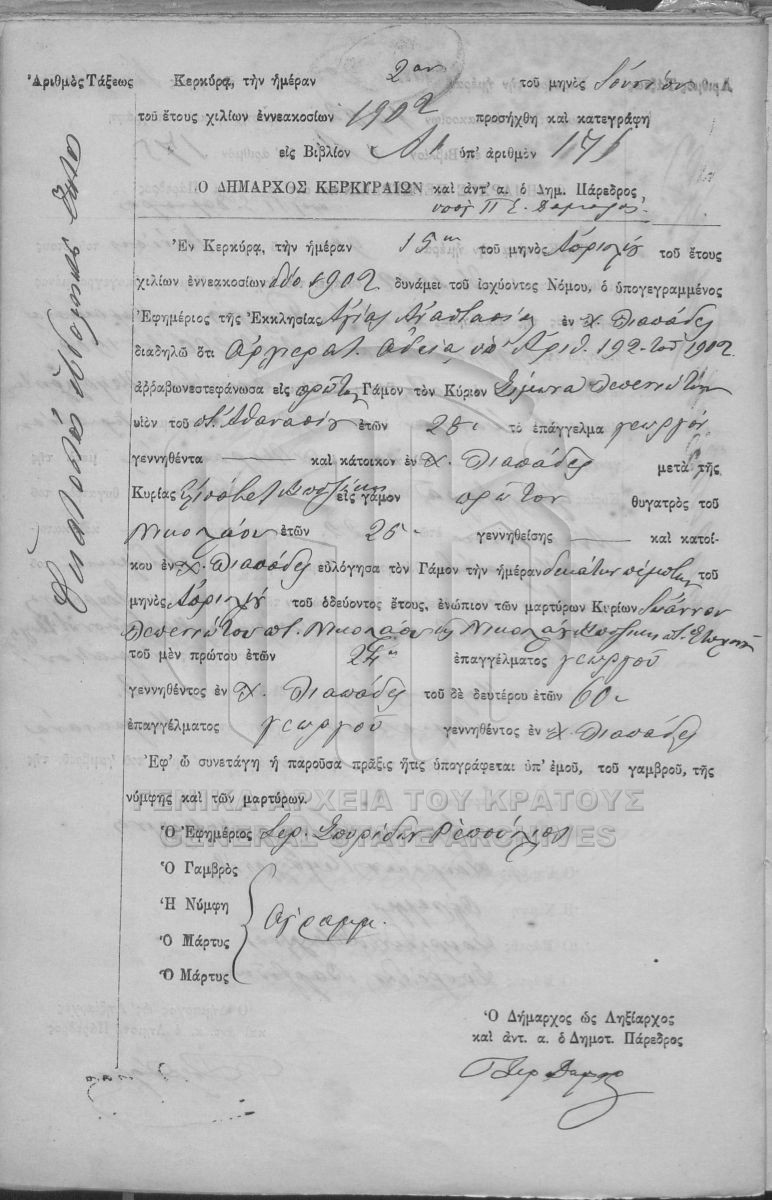 Ἀριθμὸς Τάξεως
Ἑκατοστὸς ἑβδομηκοστὸς
Κερκύρᾳ, τὴν ἡμέραν 2αν τοῦ μηνὸς Ἰουνίου
τοῦ ἔτους χιλίων ἐννεακοσίων 1902 προσήχθη καὶ κατεγράφη
εἰς Βιβλίον Α ὑπ' ἀριθμὸν 171
Ὁ ΔΗΜΑΡΧΟΣ ΚΕΡΚΥΡΑΙΩΝ καὶ ἀντ' α. ὁ Δημ. Πάρεδρος
Ἐν Κερκύρᾳ, τὴν ἡμέραν 15ην τοῦ μηνὸς Ἀπριλίου τοῦ ἔτους
χιλίων ἐννεακοσίων δύο 1902 δυνάμει τοῦ ἰσχύοντος Νόμου, ὁ ὑπογεγραμμένος
Ἐφημέριος τῆς Ἐκκλησίας Ἁγίας Ἀναστασίας ἐν χ. Λιαπάδες
διαδηλῶ ὅτι Ἀρχιερατ. ἀδείᾳ ὑπ' Ἀριθ. 192 τοῦ 1902
ἀῤῥαβωνεστεφάνωσα εἰς πρῶτον Γάμον τὸν Κύριον Σίμωνα Λεπενιώτην
υἱὸν τοῦ π. Ἀθανασίου ἐτῶν 28 τὸ ἐπάγγελμα γεωργόν
γεννηθέντα καὶ κάτοικον ἐν χ. Λιαπάδες μετὰ τῆς
Κυρίας Ἐλισάβετ εἰς γάμον πρῶτον θυγατρὸς τοῦ
Νικολάου ἐτῶν 25 γεννηθείσης καὶ κατοί-
κου ἐν χ. Λιαπάδες εὐλόγησα τὸν Γάμον τὴν ἡμέραν δεκάτην πέμπτην τοῦ
μηνὸς Ἀπριλίου τοῦ ὁδεύοντος ἔτους, ἐνώπιον τῶν μαρτύρων Κυρίων Ἰωάννου
Λεπενιώτου π. Νικολάου καὶ Νικολάου
τοῦ μὲν πρώτου ἐτῶν 24 ἐπαγγέλματος γεωργοῦ
γεννηθέντος ἐν χ. Λιαπάδες τοῦ δὲ δευτέρου ἐτῶν 60
ἐπαγγέλματος γεωργοῦ γεννηθέντος ἐν χ. Λιαπάδες
Ἐφ' ᾧ συνετάγη ἡ παροῦσα πρᾶξις ἥτις ὑπογράφεται ὑπ' ἐμοῦ, τοῦ γαμβροῦ, τῆς
νύμφης καὶ τῶν μαρτύρων.
ΓΕΝΙΚΑ ΑΡΧΕΙΑ ΤΟΥ ΚΡΑΤΟΥΣ
GENERAL STATE ARCHIVES
Ὁ Ἐφημέριος Ἱερ. Σπυρίδων
Ὁ Γαμβρὸς
Ἡ Νύμφη
Ἀγράμμ.
Ὁ Μάρτυς
Ὁ Μάρτυς
Ὁ Δήμαρχος ὡς Ληξίαρχος
καὶ ἀντ. α. ὁ Δημοτ. Πάρεδρος